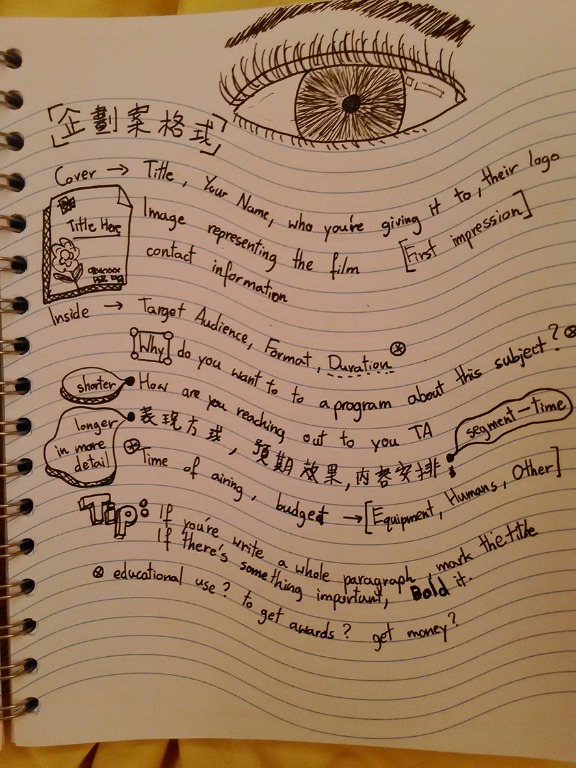 [企劃案格式]
Cover → Title, Your Name, who you're giving it to, their logo
Title Here
Image representing the film [First impression]
contact information
Inside → Target Audience, Format, Duration ⊛
Why do you want to to a program about this subject? ⊛
shorter
How are you reaching out to you TA
segment-time
longer in more detail
表現方式, 預期效果, 內容安排:
⊛ Time of airing, budget → [Equipment, Humans, Other]
Tip: If you're write a whole paragraph, mark the title
If there's something important, Bold it.
⊛ educational use? to get awards? get money?